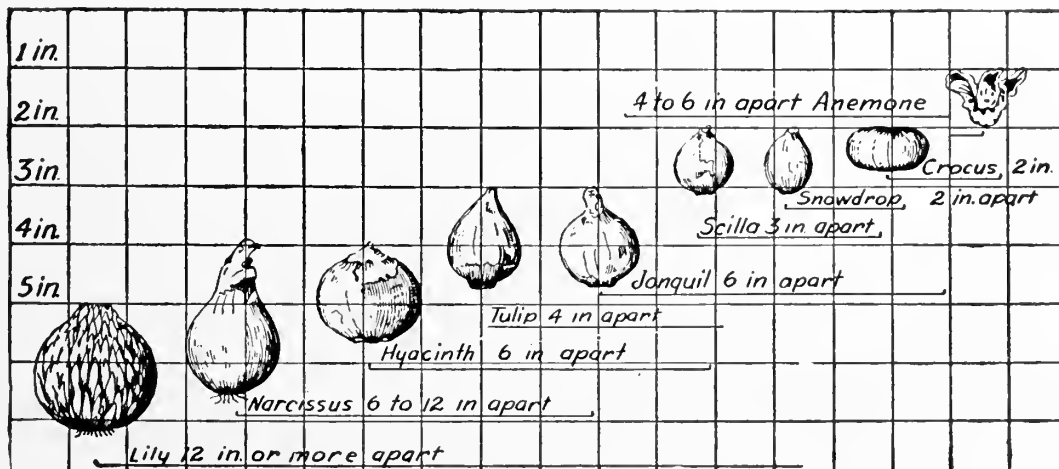 1 in.
2 in.
4 to 6 in apart Anemone
3 in.
Crocus, 2 in.
Snowdrop, 2 in. apart
4 in.
Scilla 3 in apart
5 in.
Jonquil 6 in apart
Tulip 4 in apart
Hyacinth 6 in apart
Narcissus 6 to 12 in apart
Lily 12 in. or more apart